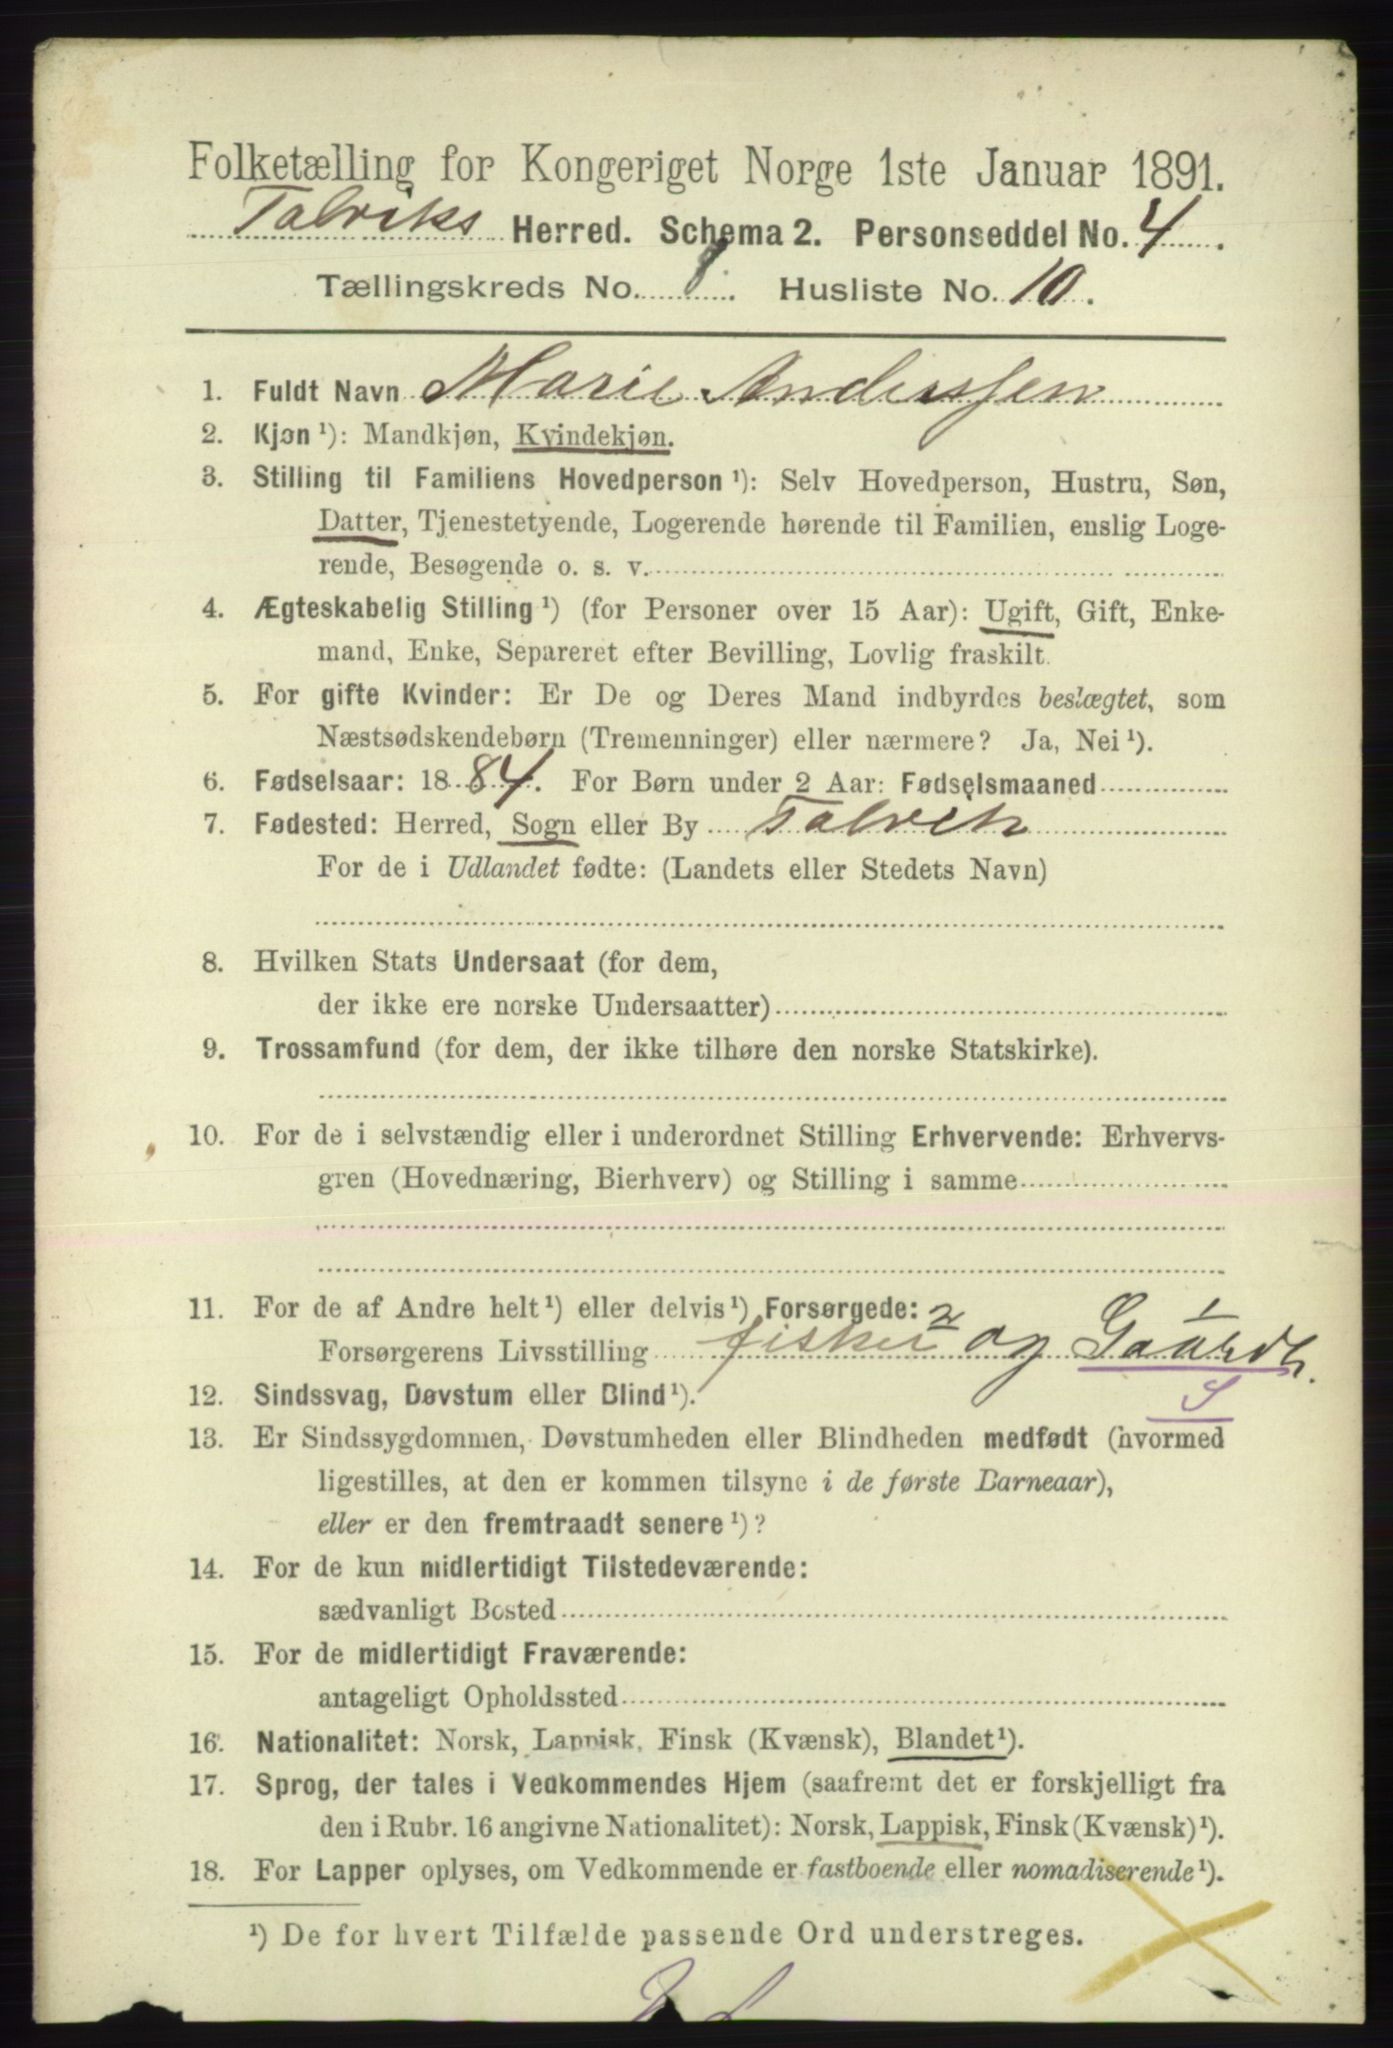 Folketælling for Kongeriget Norge 1ste Januar 1891.
Talviks Herred. Schema 2. Personseddel No. 4.
Tællingskreds No. 8. Husliste No. 10.
1. Fuldt Navn Marie Anderssen
2. Kjøn ¹): Mandkjøn, Kvindekjøn.
3. Stilling til Familiens Hovedperson ¹): Selv Hovedperson, Hustru, Søn,
Datter, Tjenestetyende, Logerende hørende til Familien, enslig Loge-
rende, Besøgende o. s. v.
4. Ægteskabelig Stilling ¹) (for Personer over 15 Aar): Ugift, Gift, Enke-
mand, Enke, Separeret efter Bevilling, Lovlig fraskilt.
5. For gifte Kvinder: Er De og Deres Mand indbyrdes beslægtet, som
Næstsødskendebørn (Tremenninger) eller nærmere? Ja, Nei ¹).
6. Fødselsaar: 1884. For Børn under 2 Aar: Fødselsmaaned
7. Fødested: Herred, Sogn eller By Talvik
For de i Udlandet fødte: (Landets eller Stedets Navn)
8. Hvilken Stats Undersaat (for dem,
der ikke ere norske Undersaatter)
9. Trossamfund (for dem, der ikke tilhøre den norske Statskirke).
10. For de i selvstændig eller i underordnet Stilling Erhvervende: Erhvervs-
gren (Hovednæring, Bierhverv) og Stilling i samme
11. For de af Andre helt ¹) eller delvis ¹) Forsørgede: 2 1
Forsørgerens Livsstilling fisker og Gaardb.
S
12. Sindssvag, Døvstum eller Blind ¹).
13. Er Sindssygdommen, Døvstumheden eller Blindheden medfødt (hvormed
ligestilles, at den er kommen tilsyne i de første Barneaar),
eller er den fremtraadt senere ¹)?
14. For de kun midlertidigt Tilstedeværende:
sædvanligt Bosted
15. For de midlertidigt Fraværende:
antageligt Opholdssted
16. Nationalitet: Norsk, Lappisk, Finsk (Kvænsk), Blandet ¹).
17. Sprog, der tales i Vedkommendes Hjem (saafremt det er forskjelligt fra
den i Rubr. 16 angivne Nationalitet): Norsk, Lappisk, Finsk (Kvænsk) ¹).
18. For Lapper oplyses, om Vedkommende er fastboende eller nomadiserende ¹).
¹) De for hvert Tilfælde passende Ord understreges.